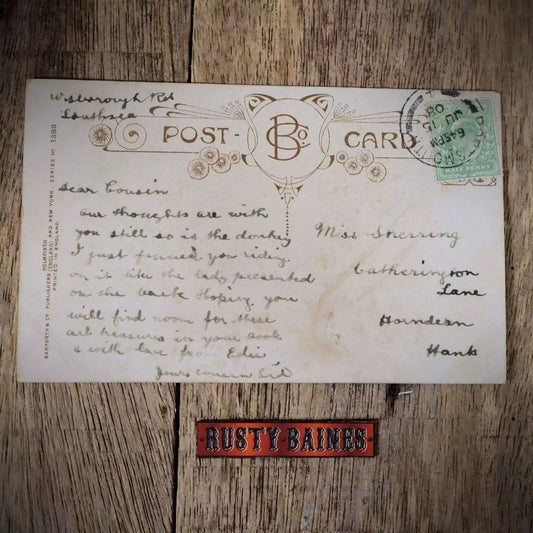 Wisborough Rd
Southsea
POST-CARD
B & Co
Dear Cousin
our thoughts are with
you still so is the donkey
I just fancied you riding
on it like the lady presented
on the back Hoping you
will find room for these
art treasures in your book
& with love from Edie
Your cousin Sid
Miss Sherring
Catherington
Lane
Horndean
Hants
PORTSMOUTH
6 45PM
JU 15
08
HALF PENNY
BAMFORTH & CO. PUBLISHERS HOLMFIRTH (ENGLAND) AND NEW YORK. SERIES NO 1388
PRINTED IN ENGLAND.
RUSTY·BAINES